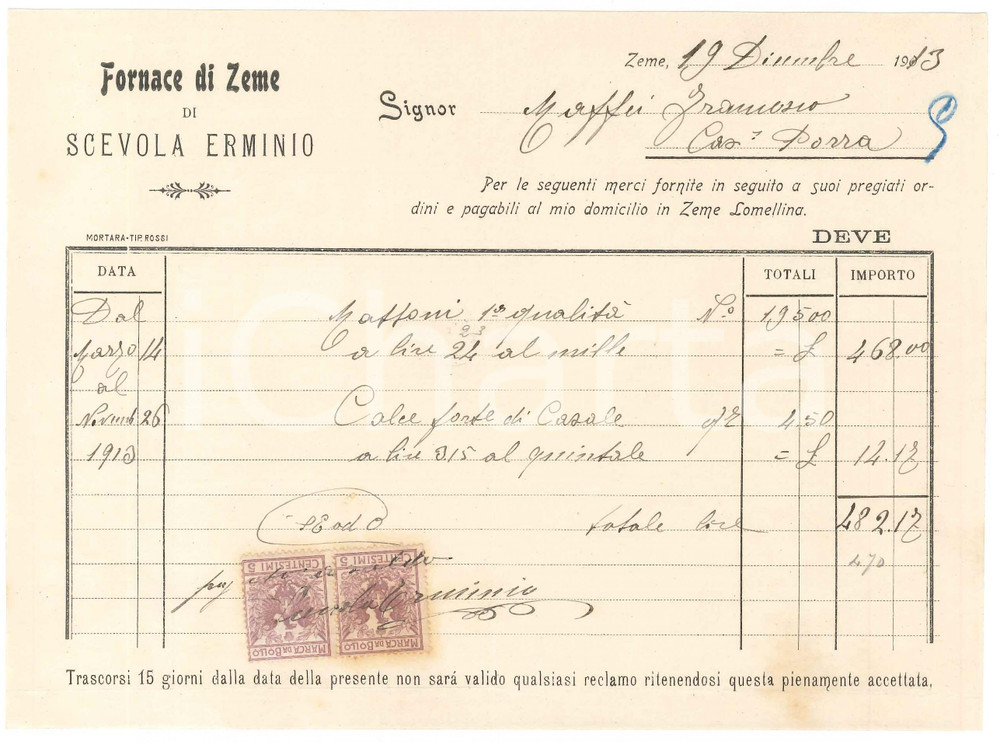 Fornace di Zeme
DI
SCEVOLA ERMINIO
Zeme, 19 Dicembre 1913
Signor Maffei Francesco
Cas.a Porra
Per le seguenti merci fornite in seguito a suoi pregiati or-
dini e pagabili al mio domicilio in Zeme Lomellina.
MORTARA-TIP. ROSSI
DEVE
DATA TOTALI IMPORTO
Dal Mattoni 1a qualità N.o 19500
Marzo 14 a lire 24 al mille = £ 468.00
23
al
Novemb 26 Calce forte di Casale 4.50
1913 a lire 3.15 al quintale = £ 14.17
totale lire 482.17
470
CENTESIMI 5 CENTESIMI 5
Scevola Erminio
MARCA DA BOLLO MARCA DA BOLLO
Trascorsi 15 giorni dalla data della presente non sará valido qualsiasi reclamo ritenendosi questa pienamente accettata.
iCharta